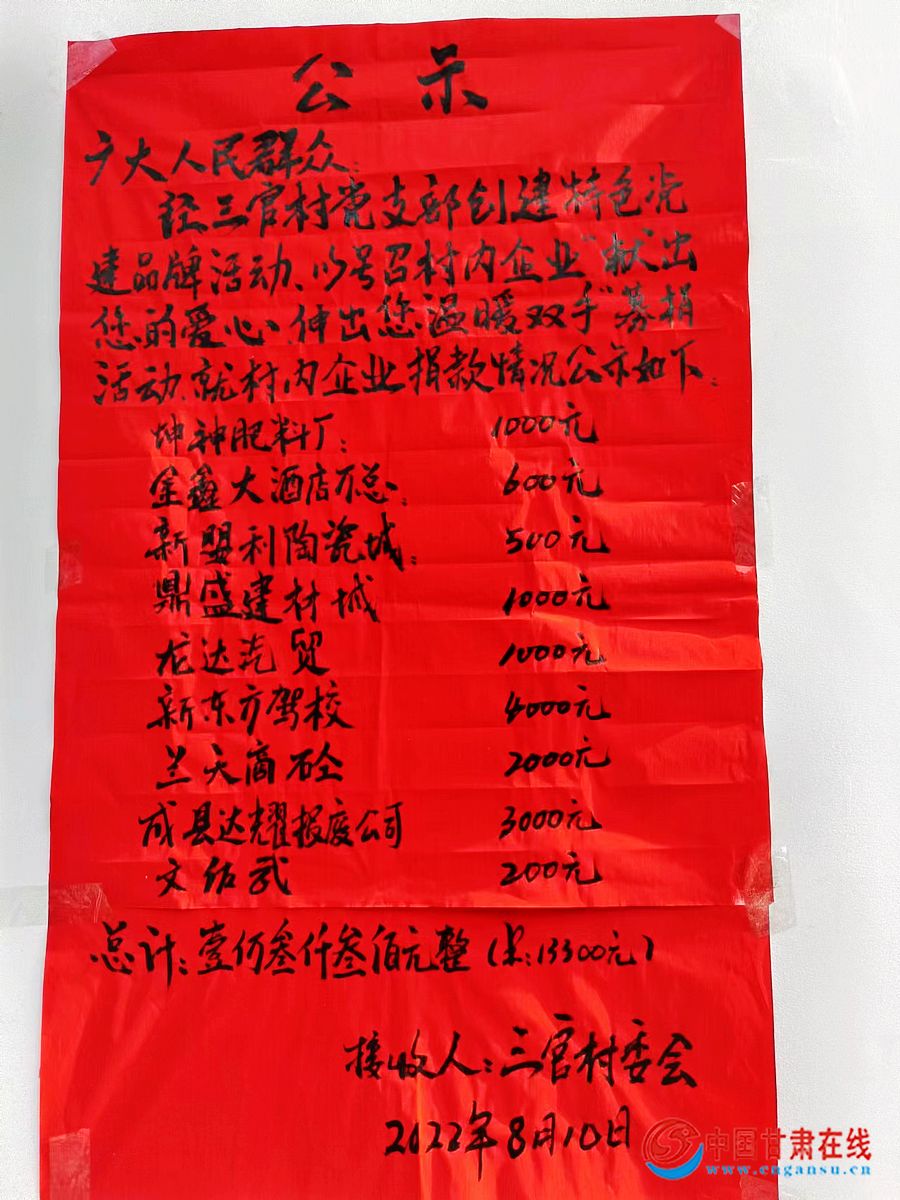 公示
广大人民群众:
经三官村党支部创建特色党
建品牌活动、以号召村内企业“献出
您的爱心、伸出您温暖双手”募捐
活动、就村内企业捐款情况公示如下:
坤神肥料厂: 1000元
金鑫大酒店万总: 600元
新盟利陶瓷城: 500元
鼎盛建材城 1000元
龙达汽贸 1000元
新东方驾校 4000元
兰天商砼 2000元
成县达耀报废公司 3000元
文佑武 200元
总计:壹仞叁仟叁佰元整(:13300元)
接收人:三官村委会
2022年8月10日
中国甘肃在线
www.cngansu.cn